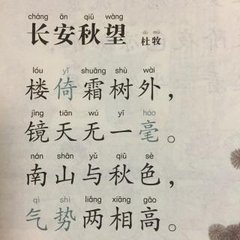 cháng ān qiū wàng
长安秋望
dù mù
杜牧
lóu yǐ shuāng shù wài
楼倚霜树外，
jìng tiān wú yì háo
镜天无一毫。
nán shān yǔ qiū sè
南山与秋色，
qì shì liǎng xiāng gāo
气势两相高。